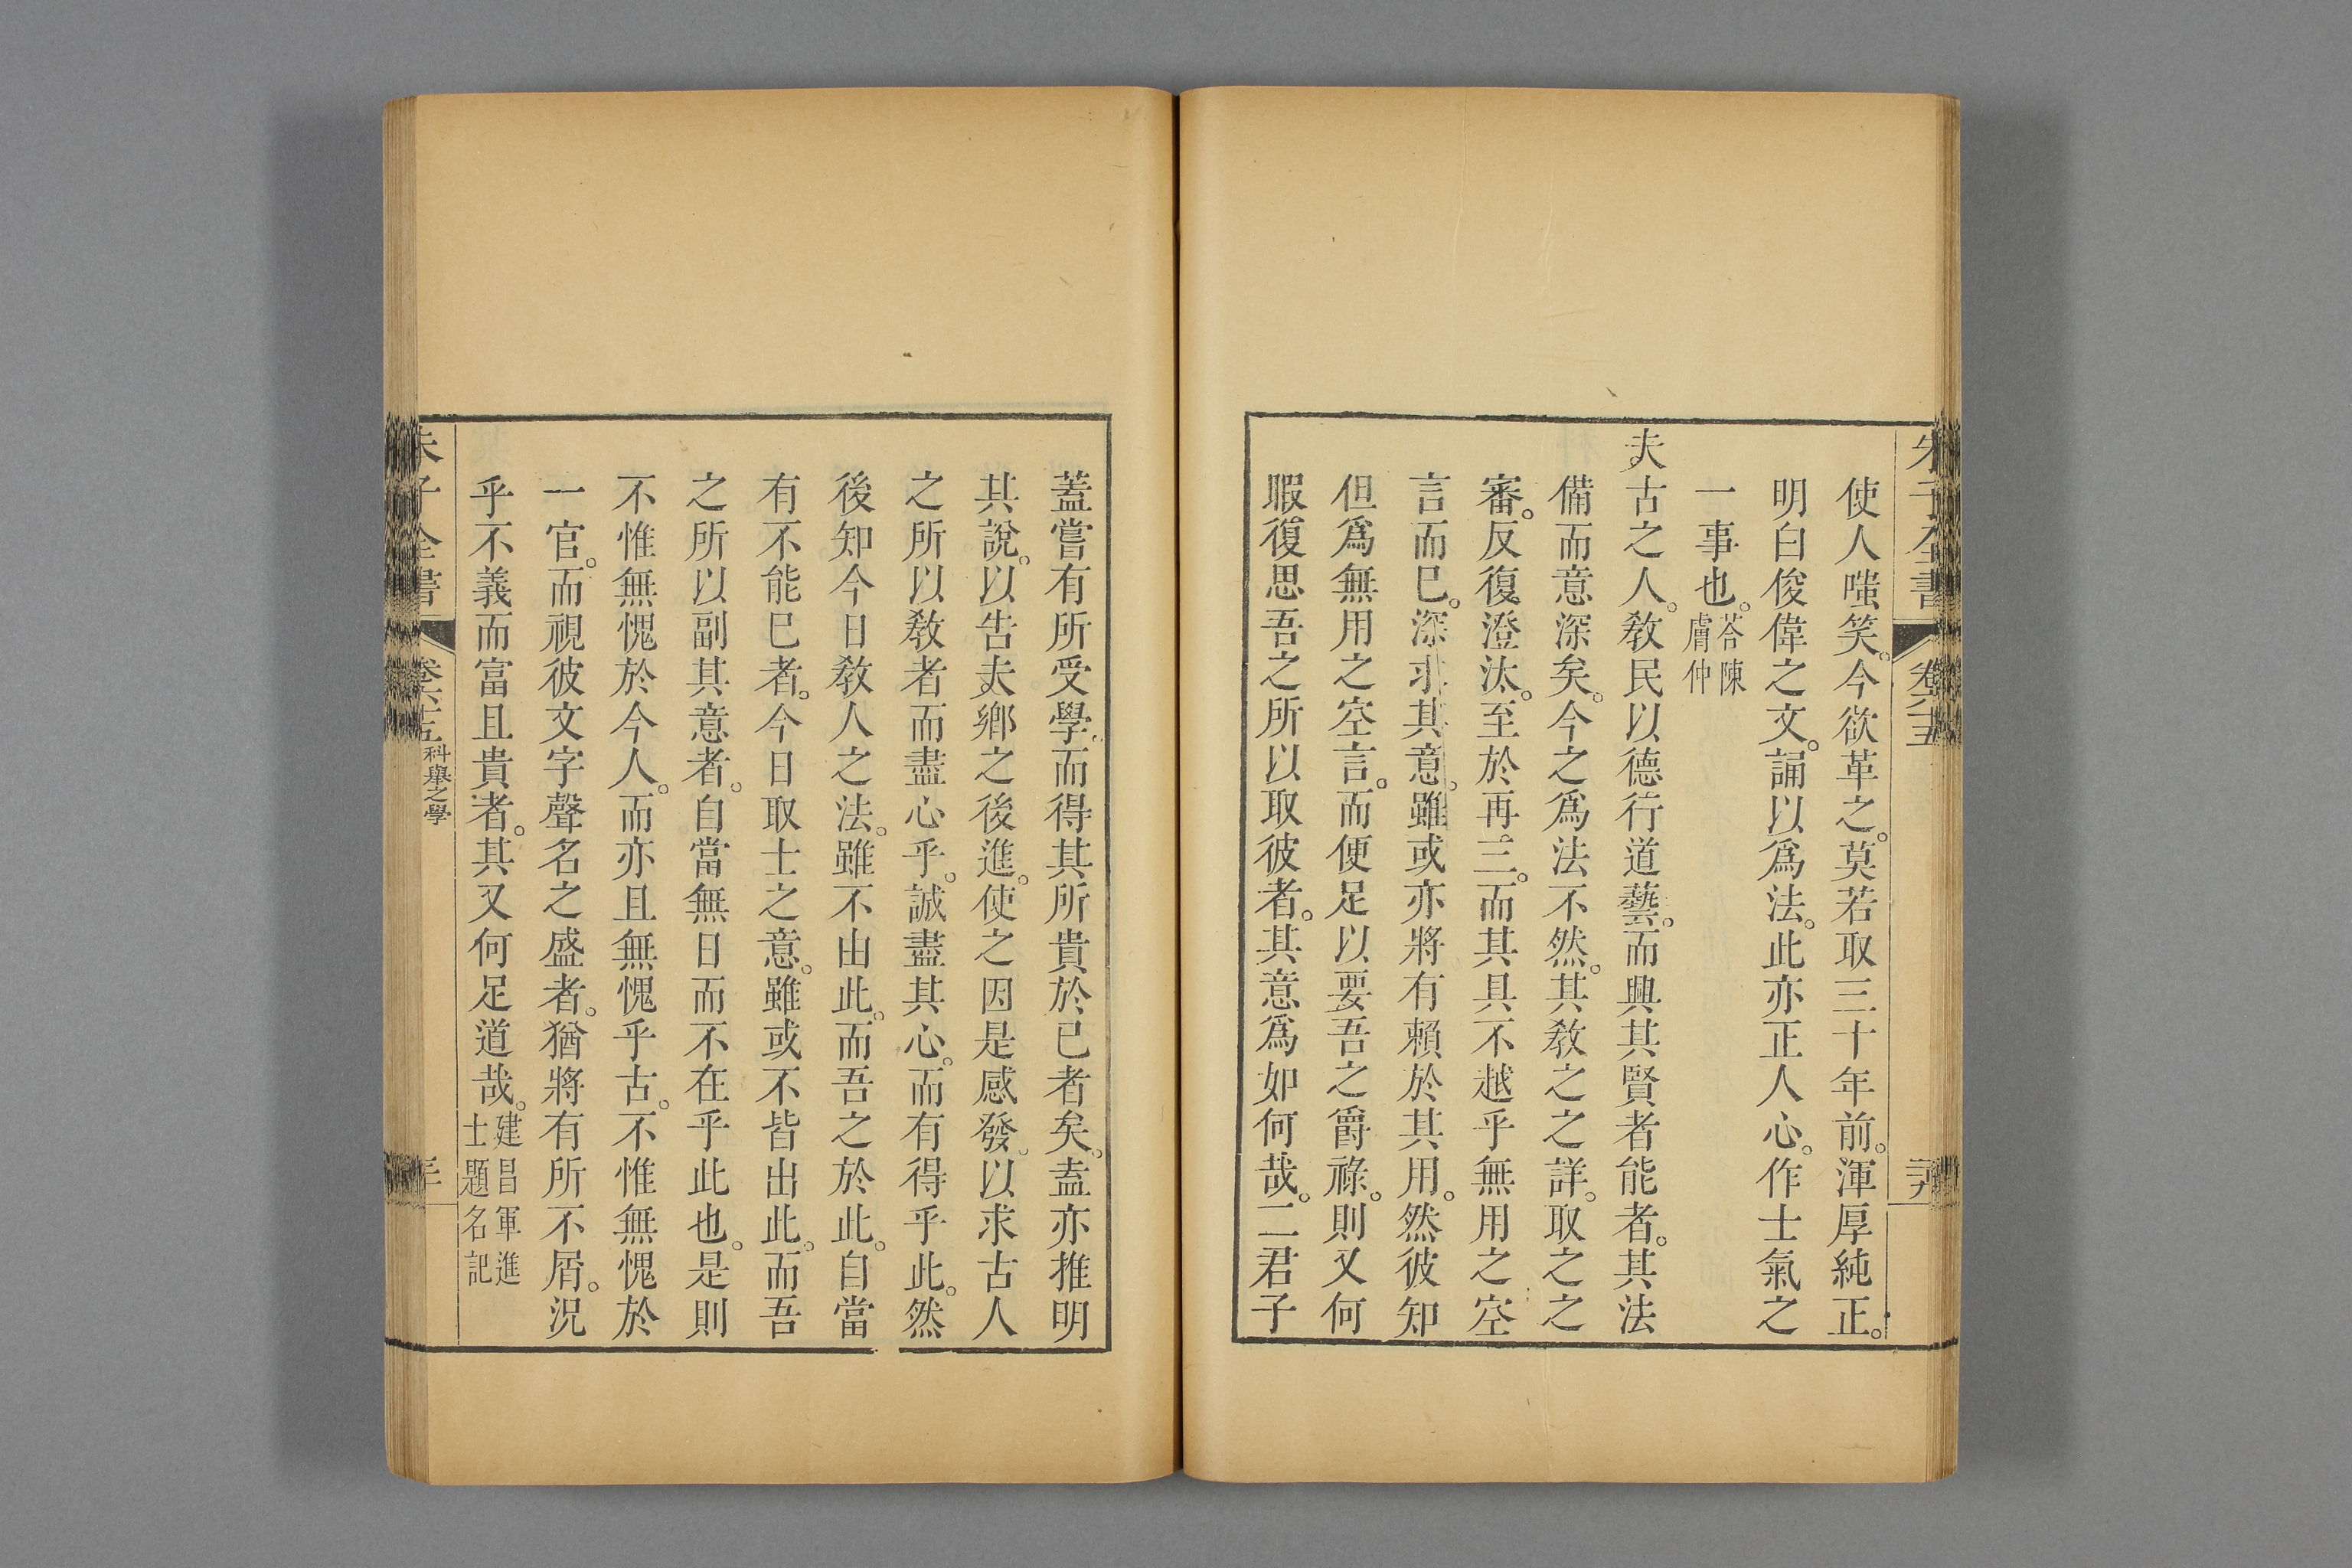 朱子全書 卷六十五
使人嗤笑。今欲革之。莫若取三十年前。渾厚純正。
明白俊偉之文。誦以爲法。此亦正人心。作士氣之
一事也。荅陳膚仲
夫古之人。敎民以德行道藝。而興其賢者能者。其法
備而意深矣。今之爲法不然。其敎之之詳。取之之
審。反復澄汰。至於再三。而其具不越乎無用之空
言而已。深求其意。雖或亦將有賴於其用。然彼知
但爲無用之空言。而便足以要吾之爵祿。則又何
暇復思吾之所以取彼者。其意爲如何哉。二君子
蓋嘗有所受學。而得其所貴於已者矣。盍亦推明
其說。以告夫鄉之後進。使之因是感發。以求古人
之所以敎者而盡心乎。誠盡其心。而有得乎此。然
後知今日敎人之法。雖不由此。而吾之於此。自當
有不能已者。今日取士之意。雖或不皆出此。而吾
之所以副其意者。自當無日而不在乎此也。是則
不惟無愧於今人。而亦且無愧乎古。不惟無愧於
一官。而視彼文字聲名之盛者。猶將有所不屑。況
乎不義而富且貴者。其又何足道哉。建昌軍進士題名記
朱子全書 卷六十五 科舉之學